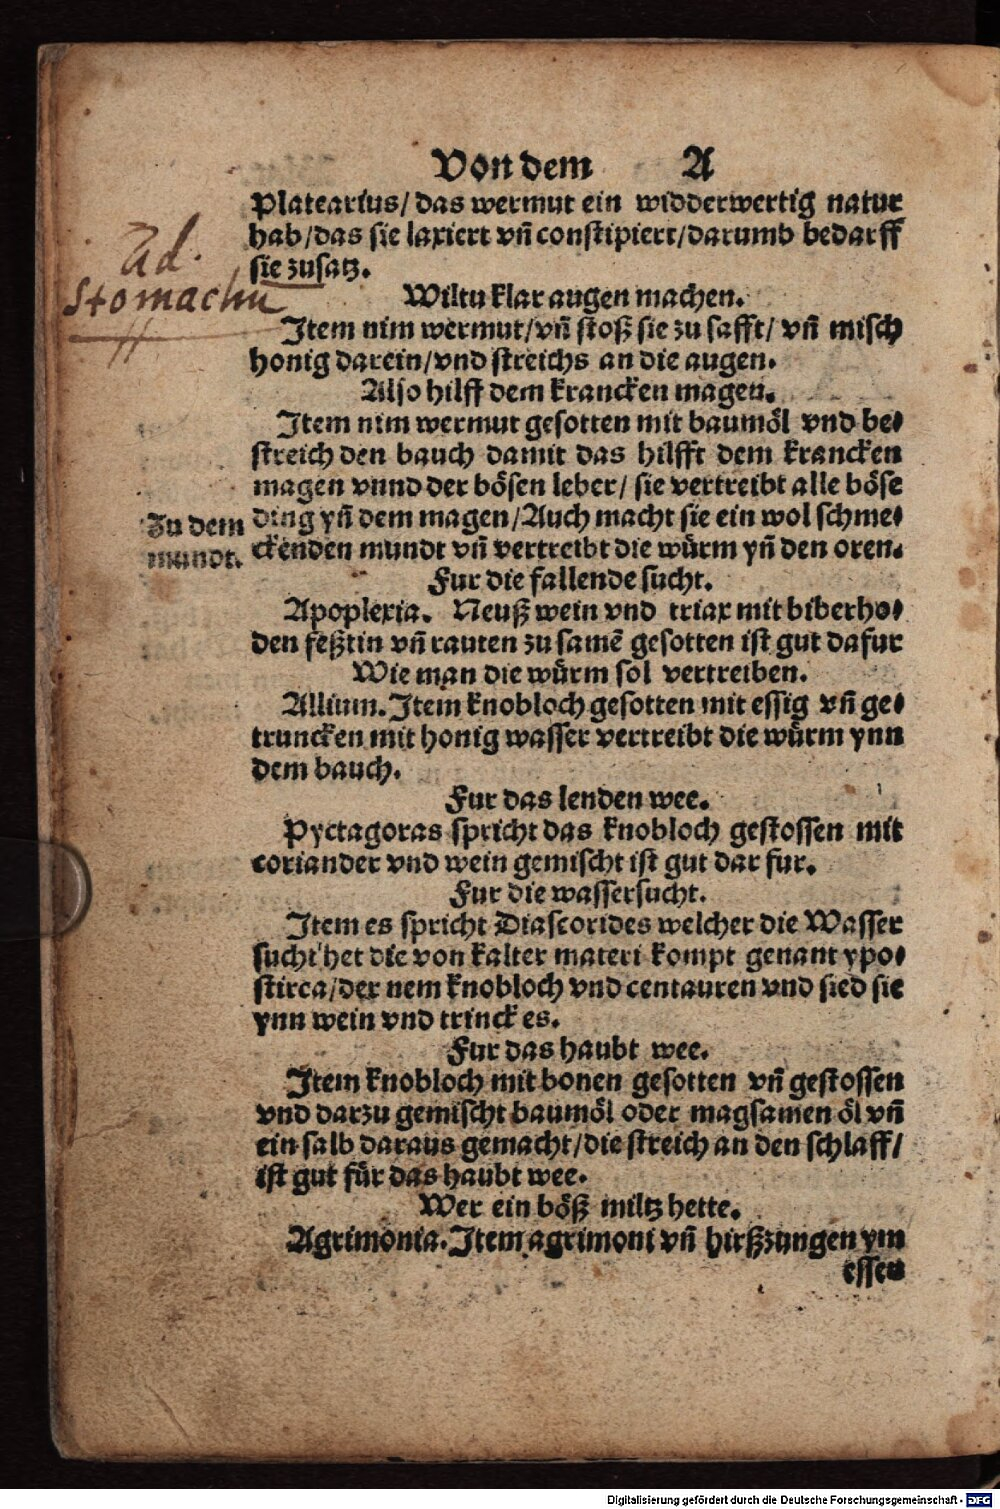 Von dem A
Platearius/ das wermut ein widderwertig natur
hab/das sie laxiert vñ constipiert/darumb bedarff
sie zusatz.
Ad.
Stomachu
Wiltu klar augen machen.
Item nim wermut/vñ stoß sie zu safft/ vñ misch
honig darein/vnd streichs an die augen.
Also hilff dem krancken magen.
Item nim wermut gesotten mit baumöl vnd be⸗
streich den bauch damit das hilfft dem krancken
magen vnnd der bösen leber/ sie vertreibt alle böse
ding yñ dem magen/Auch macht sie ein wol schme⸗
ckenden mundt vñ vertreibt die würm yñ den oren.
Zu dem
mundt.
Fur die fallende sucht.
Apoplexia. Neuß wein vnd triax mit biberho⸗
den feßtin vñ rauten zu samē gesotten ist gut dafur
Wie man die würm sol vertreiben.
Allium. Item knobloch gesotten mit essig vñ ge⸗
truncken mit honig wasser vertreibt die würm ynn
dem bauch.
Fur das lenden wee.
Pyctagoras spricht das knobloch gestossen mit
coriander vnd wein gemischt ist gut dar fur.
Fur die wassersucht.
Item es spricht Diascorides welcher die Wasser
sucht het die von kalter materi kompt genant ypo⸗
stirca/der nem knobloch vnd centauren vnd sied sie
ynn wein vnd trinck es.
Fur das haubt wee.
Item knobloch mit bonen gesotten vñ gestossen
vnd darzu gemischt baumöl oder magsamen öl vñ
ein salb daraus gemacht/die streich an den schlaff/
ist gut für das haubt wee.
Wer ein böß miltz hette.
Agrimonia. Item agrimoni vñ hirßzungen ym
essen
Digitalisierung gefördert durch die Deutsche Forschungsgemeinschaft - DFG